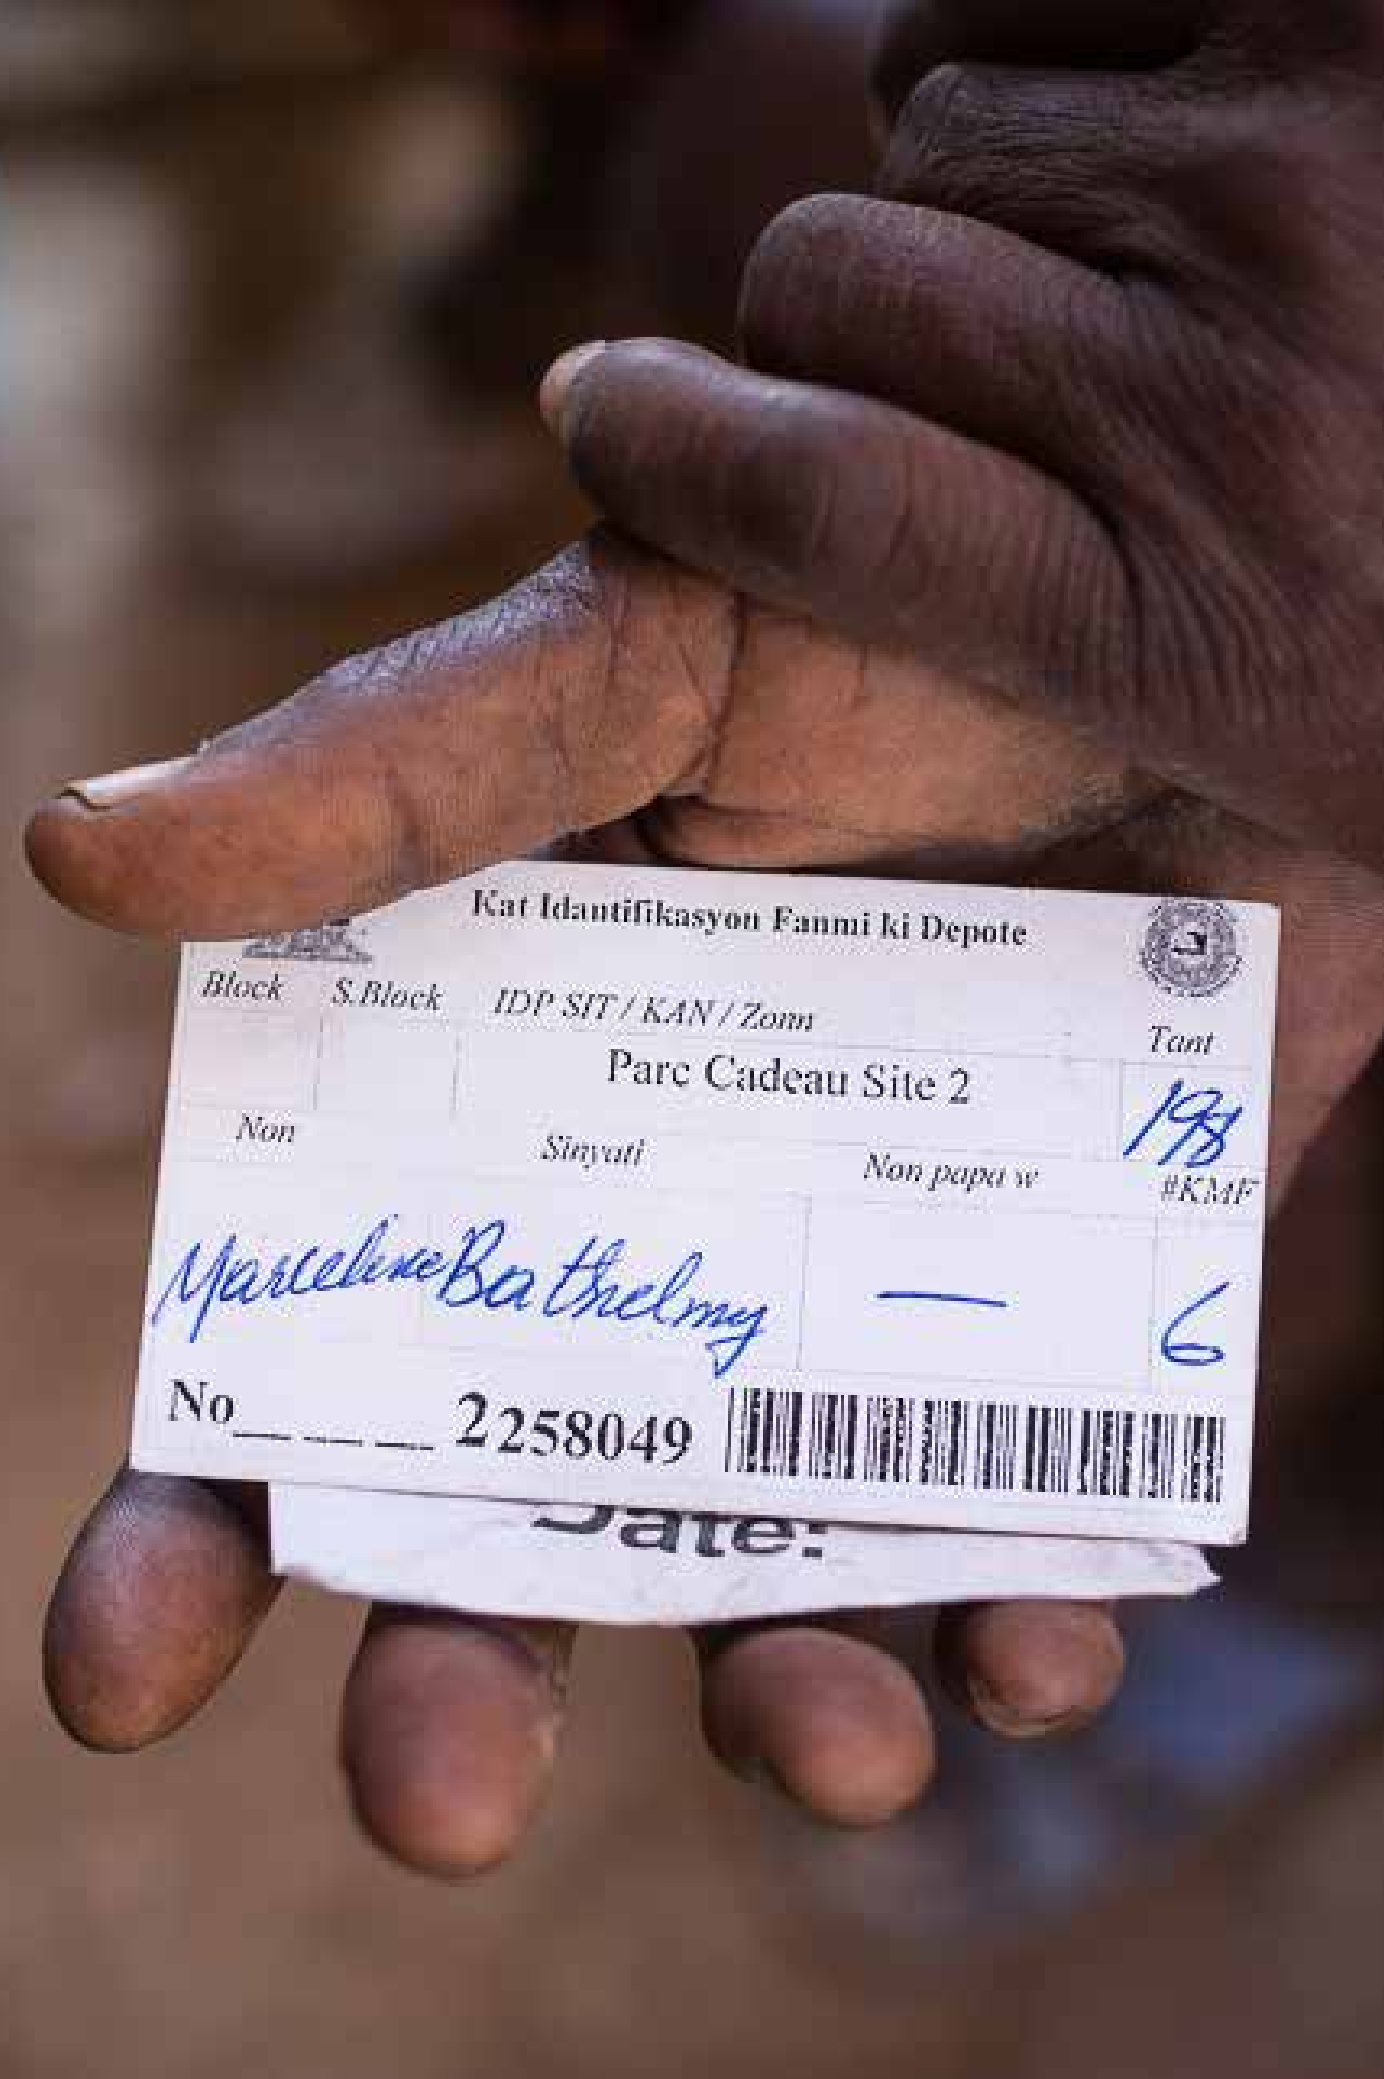 Kat Idantifikasyon Fanmi ki Depote
Block S.Block IDP SIT / KAN / Zonn Tant
Parc Cadeau Site 2 198
Non Sinyati Non papa w #KMF
Marceline Barthelmy — 6
No_ _ _ 2258049
Date: